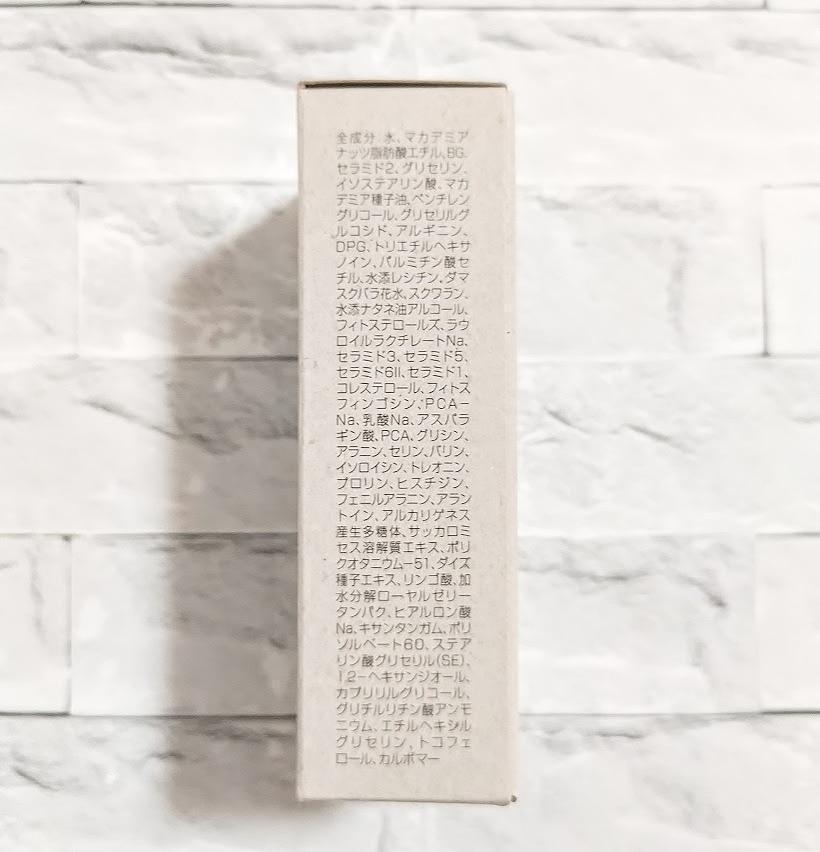 全成分:水、マカデミア
ナッツ脂肪酸エチル、BG、
セラミド2、グリセリン、
イソステアリン酸、マカ
デミア種子油、ペンチレン
グリコール、グリセリルグ
ルコシド、アルギニン、
DPG、トリエチルヘキサ
ノイン、パルミチン酸セ
チル、水添レシチン、ダマ
スクバラ花水、スクワラン、
水添ナタネ油アルコール、
フィトステロールズ、ラウ
ロイルラクチレートNa、
セラミド3、セラミド5、
セラミド6II、セラミド1、
コレステロール、フィトス
フィンゴシン、PCA-
Na、乳酸Na、アスパラ
ギン酸、PCA、グリシン、
アラニン、セリン、バリン、
イソロイシン、トレオニン、
プロリン、ヒスチジン、
フェニルアラニン、アラン
トイン、アルカリゲネス
産生多糖体、サッカロミ
セス溶解質エキス、ポリ
クオタニウム-51、ダイズ
種子エキス、リンゴ酸、加
水分解ローヤルゼリー
タンパク、ヒアルロン酸
Na、キサンタンガム、ポリ
ソルベート60、ステア
リン酸グリセリル(SE)、
1,2-ヘキサンジオール、
カプリリルグリコール、
グリチルリチン酸アンモ
ニウム、エチルヘキシル
グリセリン、トコフェ
ロール、カルボマー